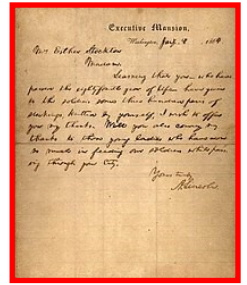 Executive Mansion,
Washington, Jany. 8, 1864
Mrs. Esther Stockton
Madam:
Learning that you who have
passed the eighty-fourth year of life have given
to the soldiers some three hundred pairs of
stockings, knitted by yourself, I wish to offer
you my thanks. Will you also convey my
thanks to those young ladies who have done
so much in feeding our soldiers while pass-
ing through your city.
Yours truly
A. Lincoln